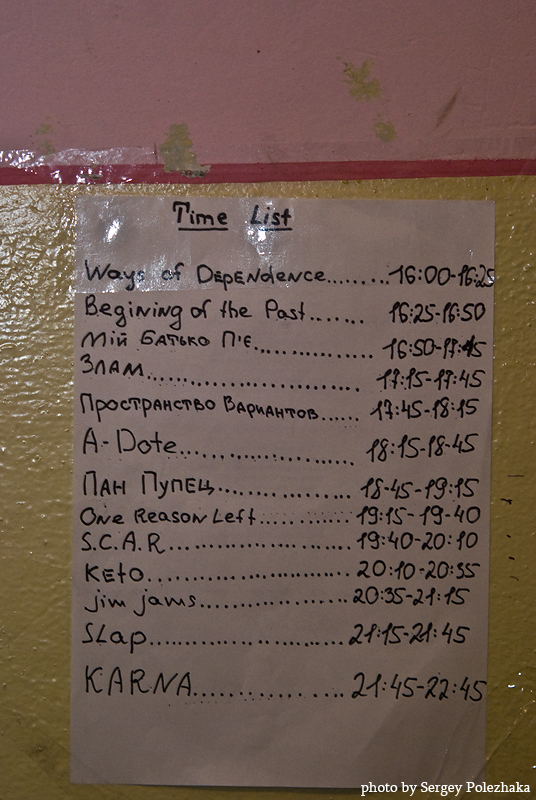 Time List
Ways of Dependence........16:00-16:25
Begining of the Past....... 16:25-16:50
Мій Батько П'є................ 16:50-17:15
Злам............................. 17:15-17:45
Пространство Вариантов...... 17:45-18:15
A-Dote....................... 18:15-18-45
Пан Пупец................. 18-45-19:15
One Reason Left............. 19:15-19-40
S.C.A.R........................ 19:40-20:10
Keto......................... 20:10-20:35
jim jams.................... 20:35-21:15
Slap......................... 21:15-21:45
KARNA.................. 21:45-22:45
photo by Sergey Polezhaka